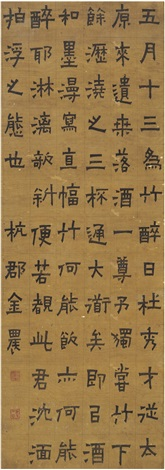 五月十三為竹醉日杜秀才從太
原來遺桒落酒一尊予獨嘗竹下
餘瀝澆之三杯通大衜矣即㠯
和墨漫寫直幅竹何能飲亦何能
醉耶淋漓欹斜便若覩此君沈湎
拍浮之態也 杭郡金農